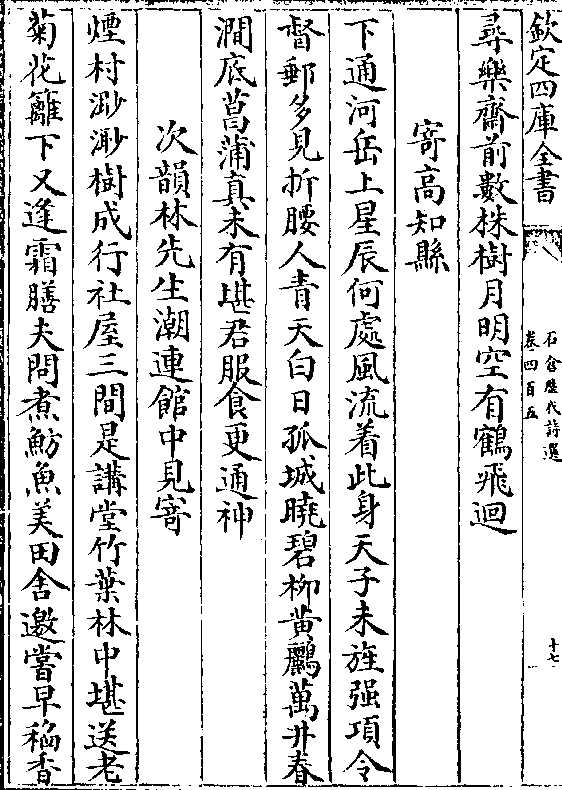 欽定四庫全書
石倉歷代詩選
卷四百五
十七
尋樂齋前數株樹月明空有鶴飛迴
寄高知縣
下通河岳上星辰何處風流着此身天子未旌强項令
督郵多見折腰人青天白日孤城曉碧柳黃鸝萬井春
澗底菖蒲真未有堪君服食更通神
次韻林先生潮連館中見寄
煙村渺渺樹成行社屋三間是講堂竹葉林中堪送老
菊花籬下又逢霜膳夫問煮魴魚美田舍邀嘗早稻香